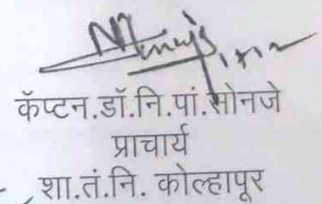 कॅप्टन.डॉ.नि.पां.सोनजे
प्राचार्य
शा.तं.नि. कोल्हापूर